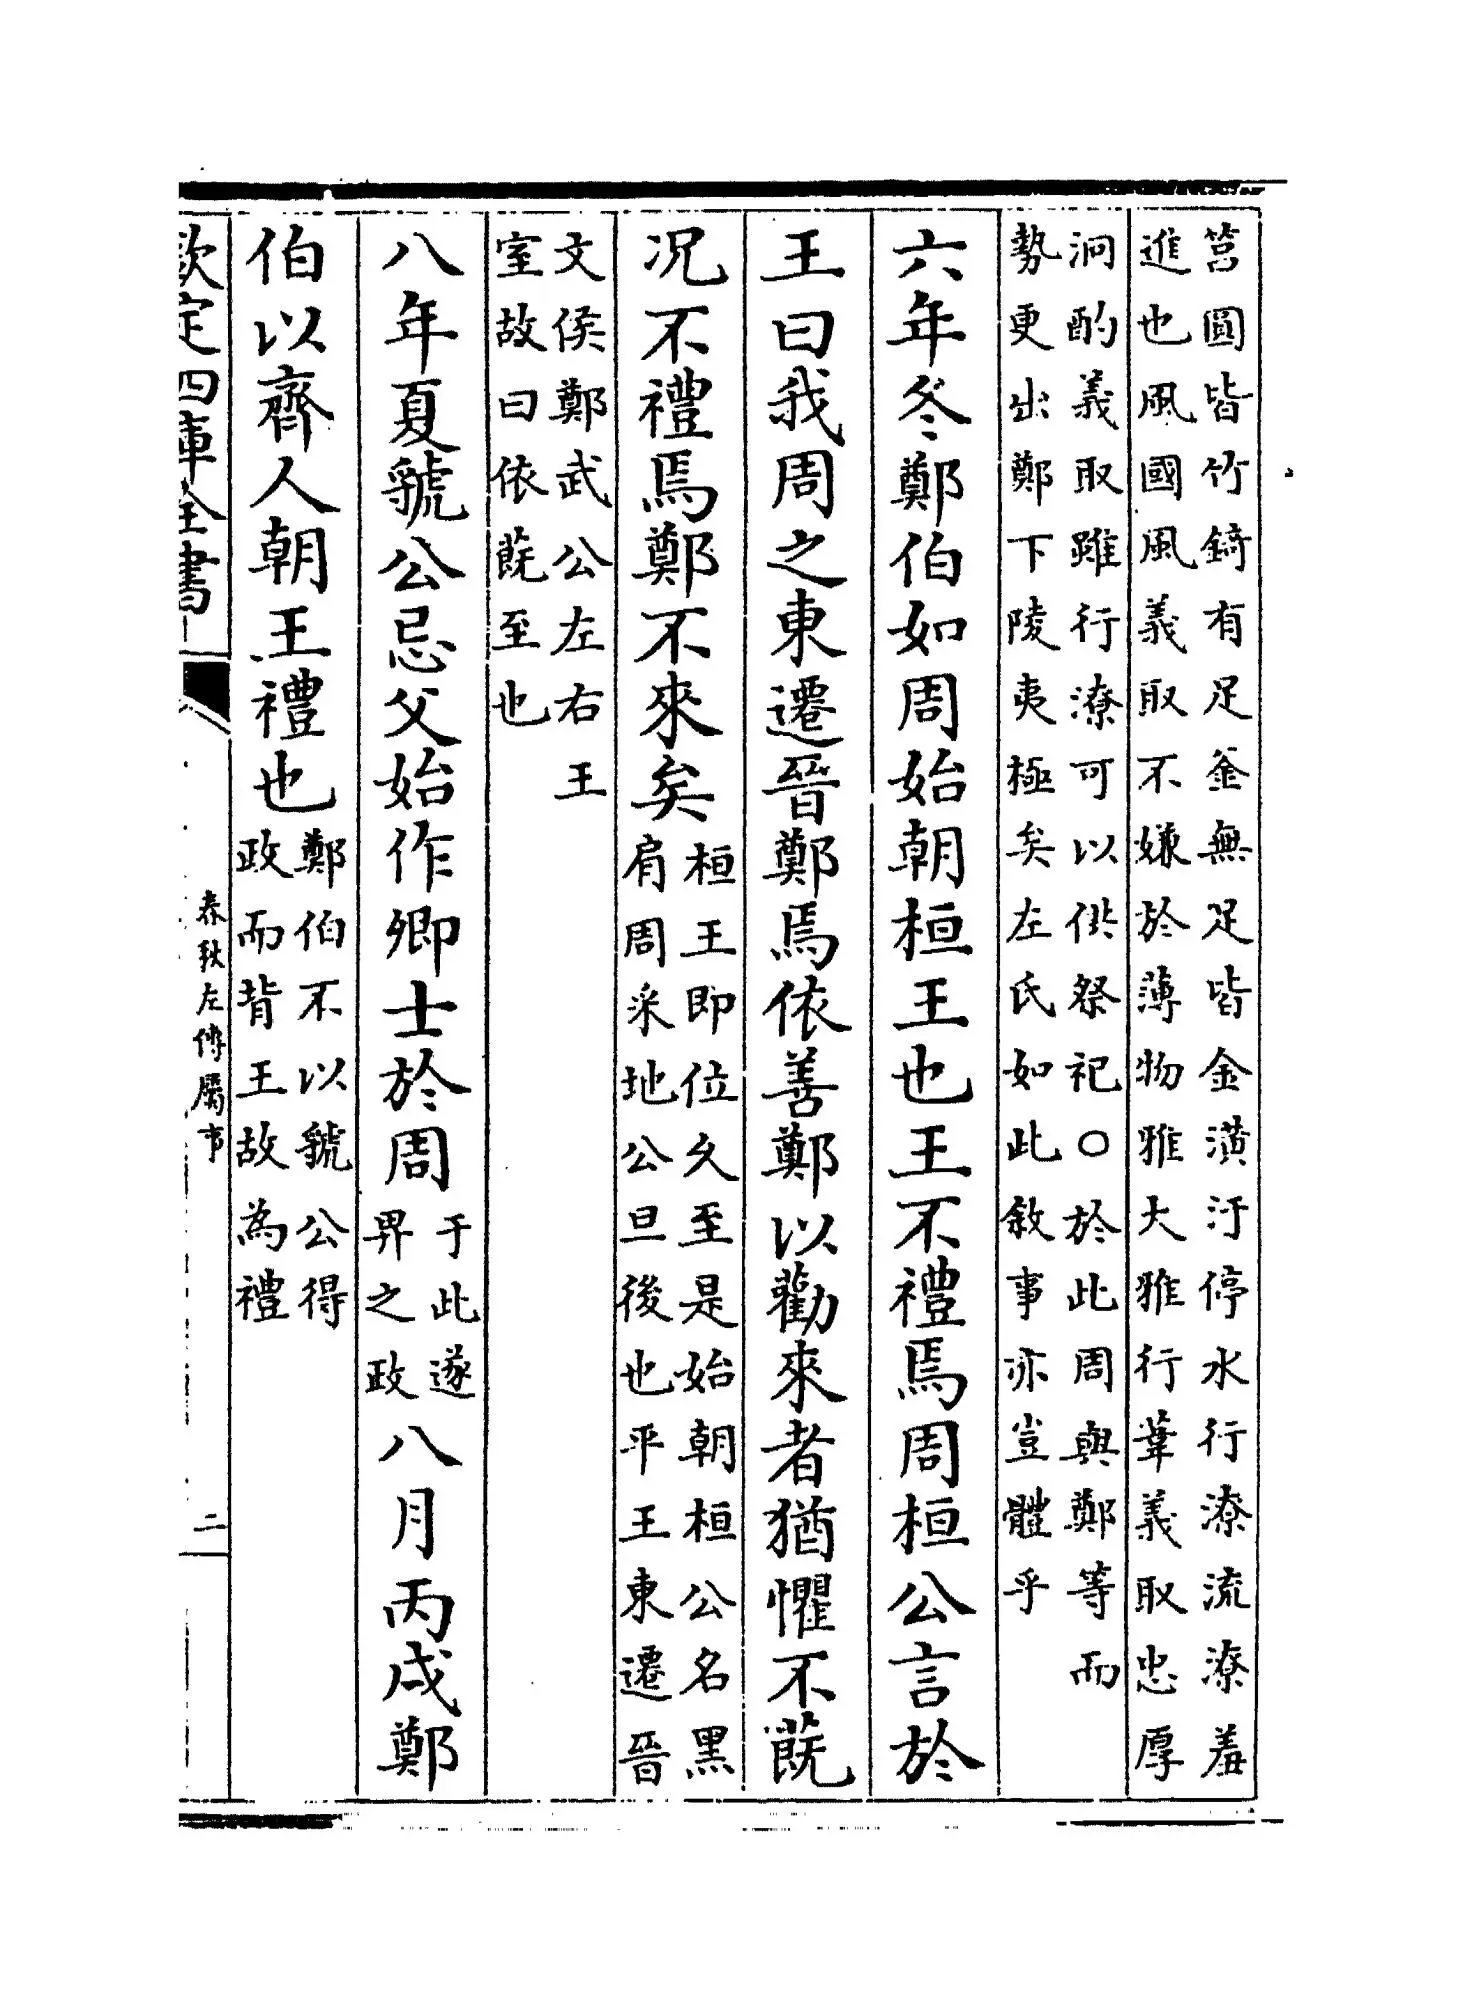 筥圓皆竹錡有足釜無足皆金潢汙停水行潦流潦羞
進也風國風義取不嫌於薄物雅大雅行葦義取忠厚
泂酌義取雖行潦可以供祭祀○於此周與鄭等而
勢更出鄭下陵夷極矣左氏如此敘事亦豈體乎
六年冬鄭伯如周始朝桓王也王不禮焉周桓公言於
王曰我周之東遷晉鄭焉依善鄭以勸來者猶懼不蔇
况不禮焉鄭不來矣
桓王即位久至是始朝桓公名黑
肩周采地公旦後也平王東遷晉
文侯鄭武公左右王
室故曰依蔇至也
八年夏虢公忌父始作卿士於周
于此遂
畀之政
八月丙戌鄭
伯以齊人朝王禮也
鄭伯不以虢公得
政而背王故為禮
欽定四庫全書
春秋左傳屬事
二